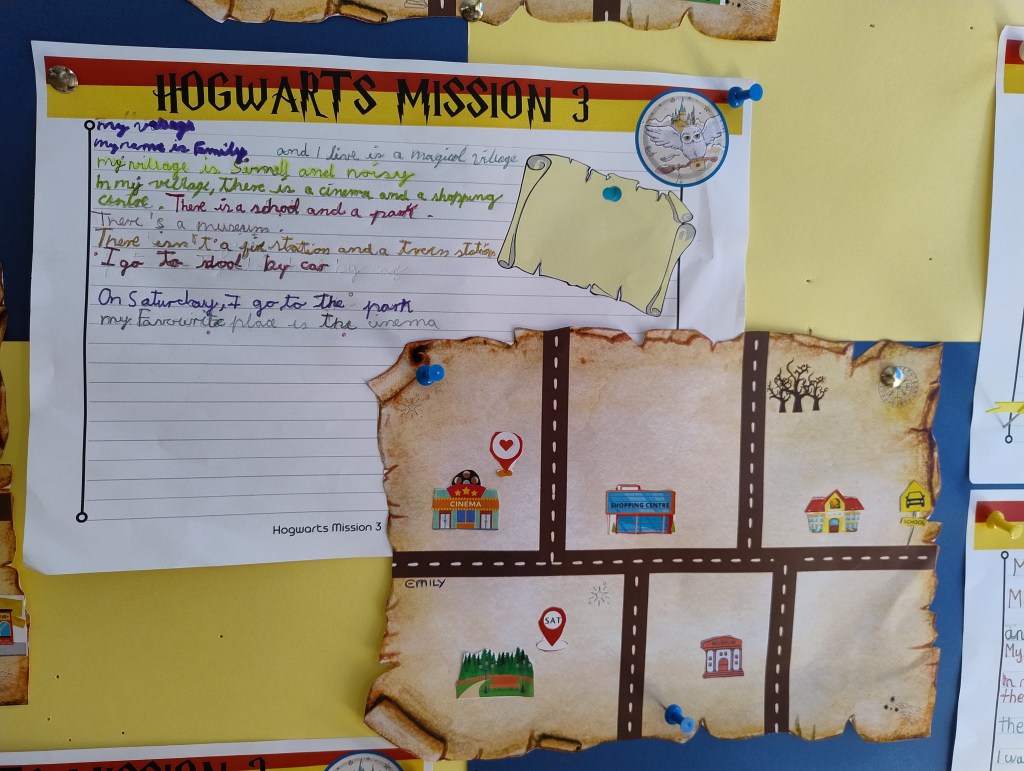 HOGWARTS MISSION 3
my village
my name is Emily and I live is a magical village
my village is Sirmell and noisy
In my village, there is a cinema and a shopping
centre. There is a school and a park.
There's a museum.
There isn't a fire station and a trern station
I go to school by car
On Saturday, I go to the park
my favourite place is the cinema
Hogwarts Mission 3
CINEMA
SHOPPING CENTRE
SCHOOL
EMILY
SAT
M
M
an
My
In m
the
the
I wa
MISSION 3